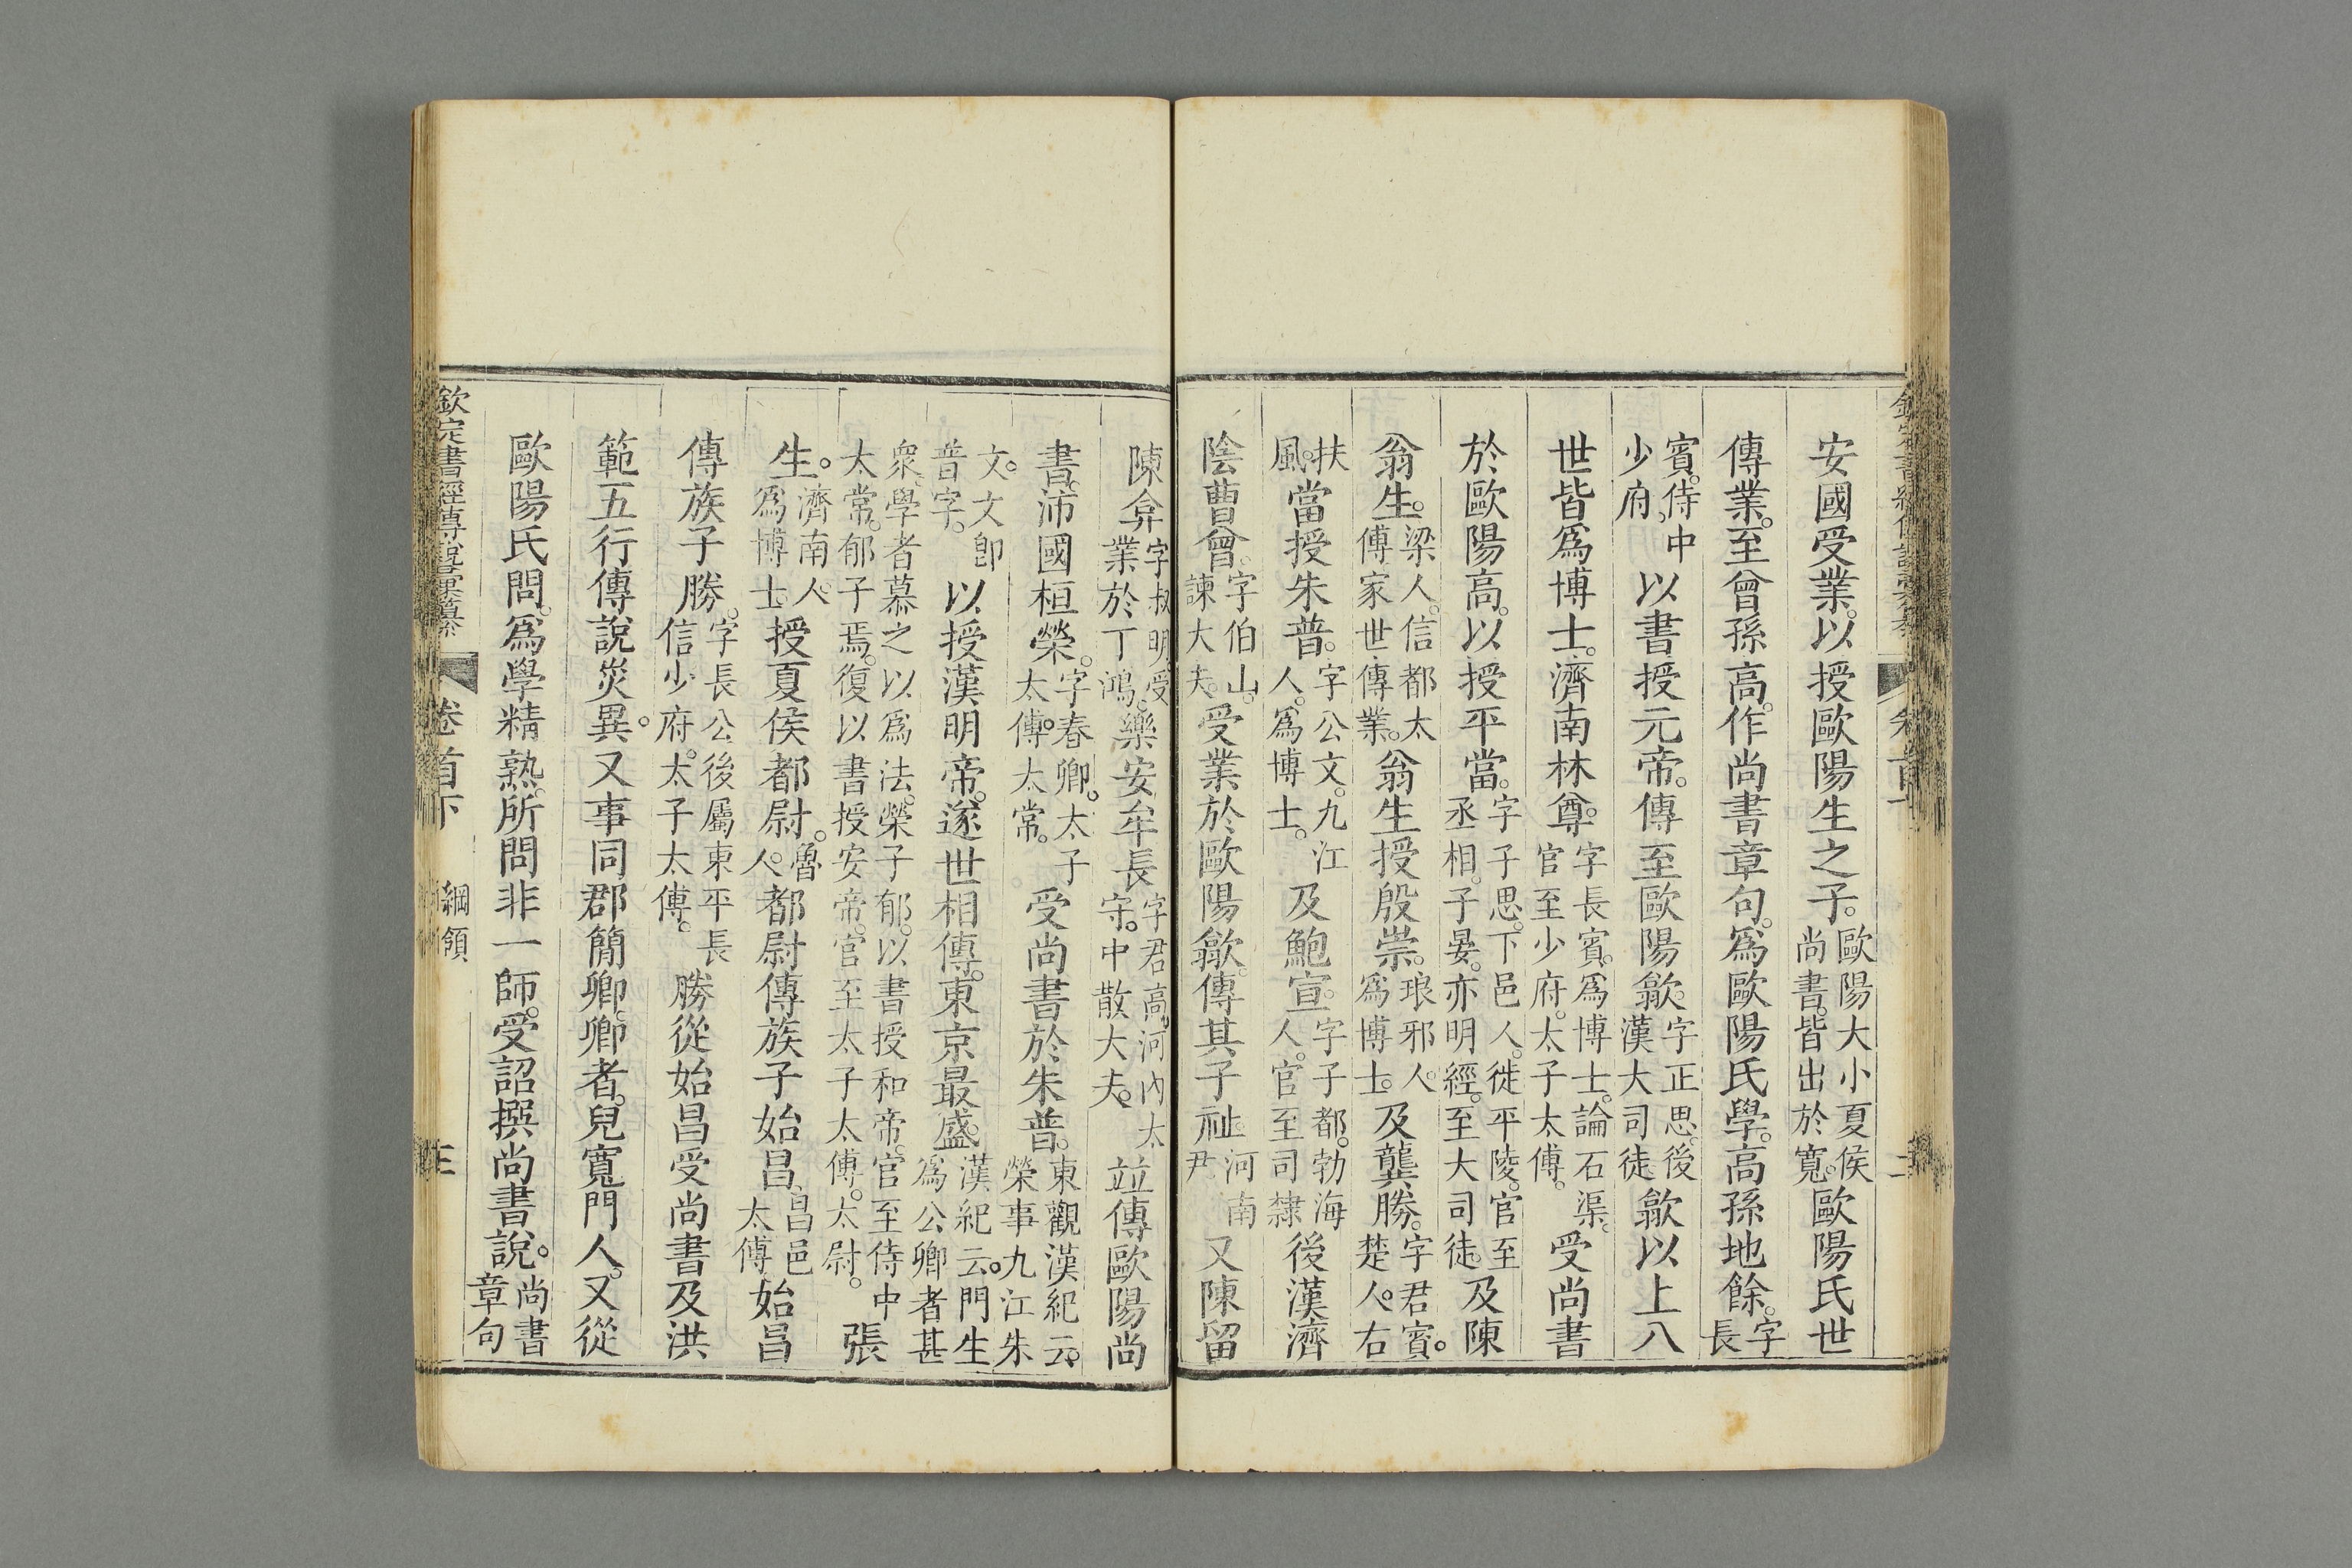 安國受業。以授歐陽生之子。歐陽大小夏侯尚書。皆出於寬。歐陽氏世
傳業。至曾孫高。作尚書章句。爲歐陽氏學。高孫地餘。字長
賓。侍中少府。以書授元帝。傳至歐陽歙。字正思。後漢大司徒。歙以上八
世皆爲博士。濟南林尊。字長賓。爲博士。論石渠。官至少府。太子太傅。受尚書
於歐陽高。以授平當。字子思。下邑人。徙平陵。官至丞相。子晏。亦明經。至大司徒。及陳
翁生。梁人。信都太傅。家世傳業。翁生授殷崇。琅邪人。爲博士。及龔勝。字君賓。楚人。右
扶風。當授朱普。字公文。九江人。爲博士。及鮑宣。字子都。勃海人。官至司隸。後漢濟
陰曹曾。字伯山。諫大夫。受業於歐陽歙。傳其子祉。河南尹。又陳留
陳弇。字叔明。受業於丁鴻。樂安牟長。字君高。河內太守。中散大夫。竝傳歐陽尚
書。沛國桓榮。字春卿。太子太傅。太常。受尚書於朱普。東觀漢紀云。榮事九江朱
文。文卽普字。以授漢明帝。遂世相傳。東京最盛。漢紀云。門生爲公卿者甚
衆。學者慕之以爲法。榮子郁。以書授和帝。官至侍中太常。郁子焉。復以書授安帝。官至太子太傅。太尉。張
生。濟南人。爲博士。授夏侯都尉。魯人。都尉傳族子始昌。昌邑太傅。始昌
傳族子勝。字長公。後屬東平。長信少府。太子太傅。勝從始昌受尚書及洪
範五行傳說災異。又事同郡簡卿。卿者。兒寬門人。又從
歐陽氏問。爲學精熟。所問非一師。受詔撰尚書說。尚書章句
欽定書經傳說彙纂 卷首下 綱領 三